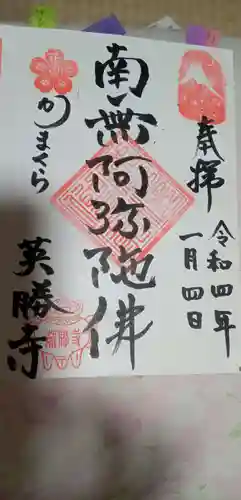 奉拝
令和四年
一月四日
南無阿弥陀佛
かまくら
英勝寺